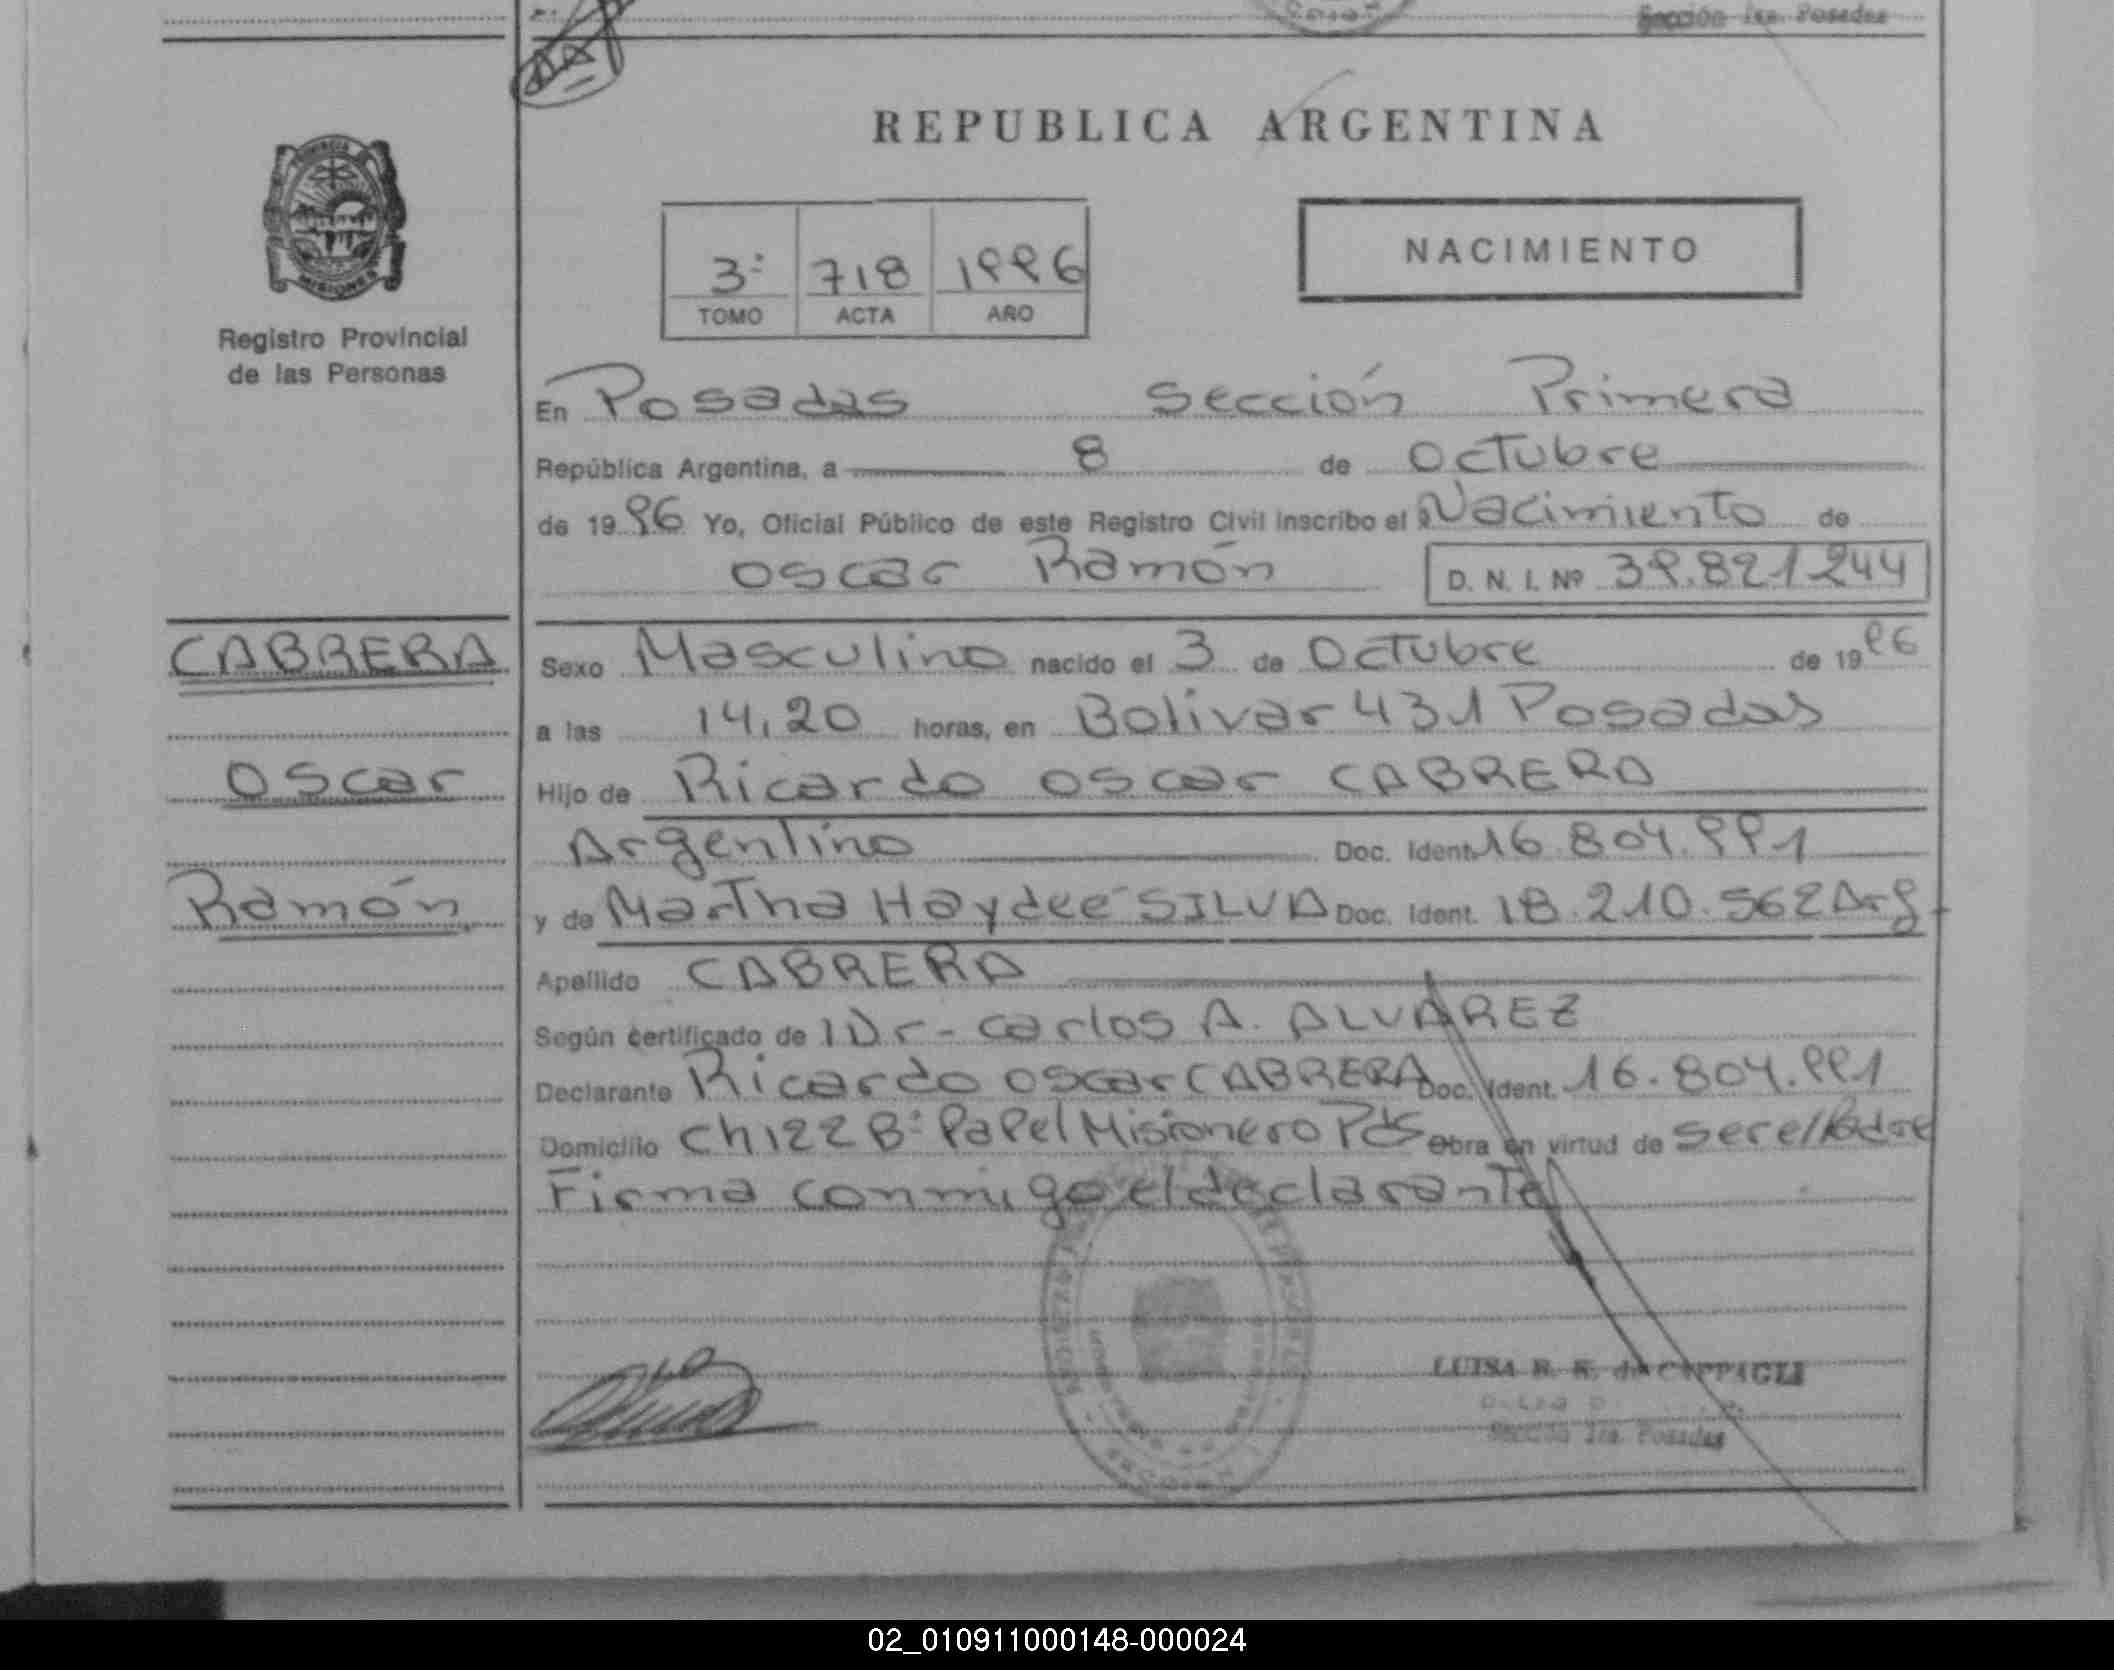 Sección 1ra. Posadas
REPUBLICA ARGENTINA
PROVINCIA DE
MISIONES
Registro Provincial
de las Personas
3º 718 1996
TOMO ACTA AÑO
NACIMIENTO
En Posadas Sección Primera
República Argentina, a 8 de Octubre
de 1996 Yo, Oficial Público de este Registro Civil inscribo el Nacimiento de
Oscar Ramón D. N. I. Nº 39.821244
CABRERA
Oscar
Ramón
Sexo Masculino nacido el 3 de Octubre de 1996
a las 14,20 horas, en Bolivar 431 Posadas
Hijo de Ricardo Oscar CABRERA
Argentino Doc. Ident. 16.804.991
y de Martha Haydeé SILVA Doc. Ident. 18.210.562 Arg
Apellido CABRERA
Según certificado de Dr- Carlos A. ALVAREZ
Declarante Ricardo Oscar CABRERA Doc. Ident. 16.804.991
Domicilio Ch 122 Bº Papel Misionero Pdas Obra en virtud de ser el Padre
Firma conmigo el declarante
LUISA R. K. de CAPPAGLI
Sección 1ra. Posadas
02_010911000148-000024